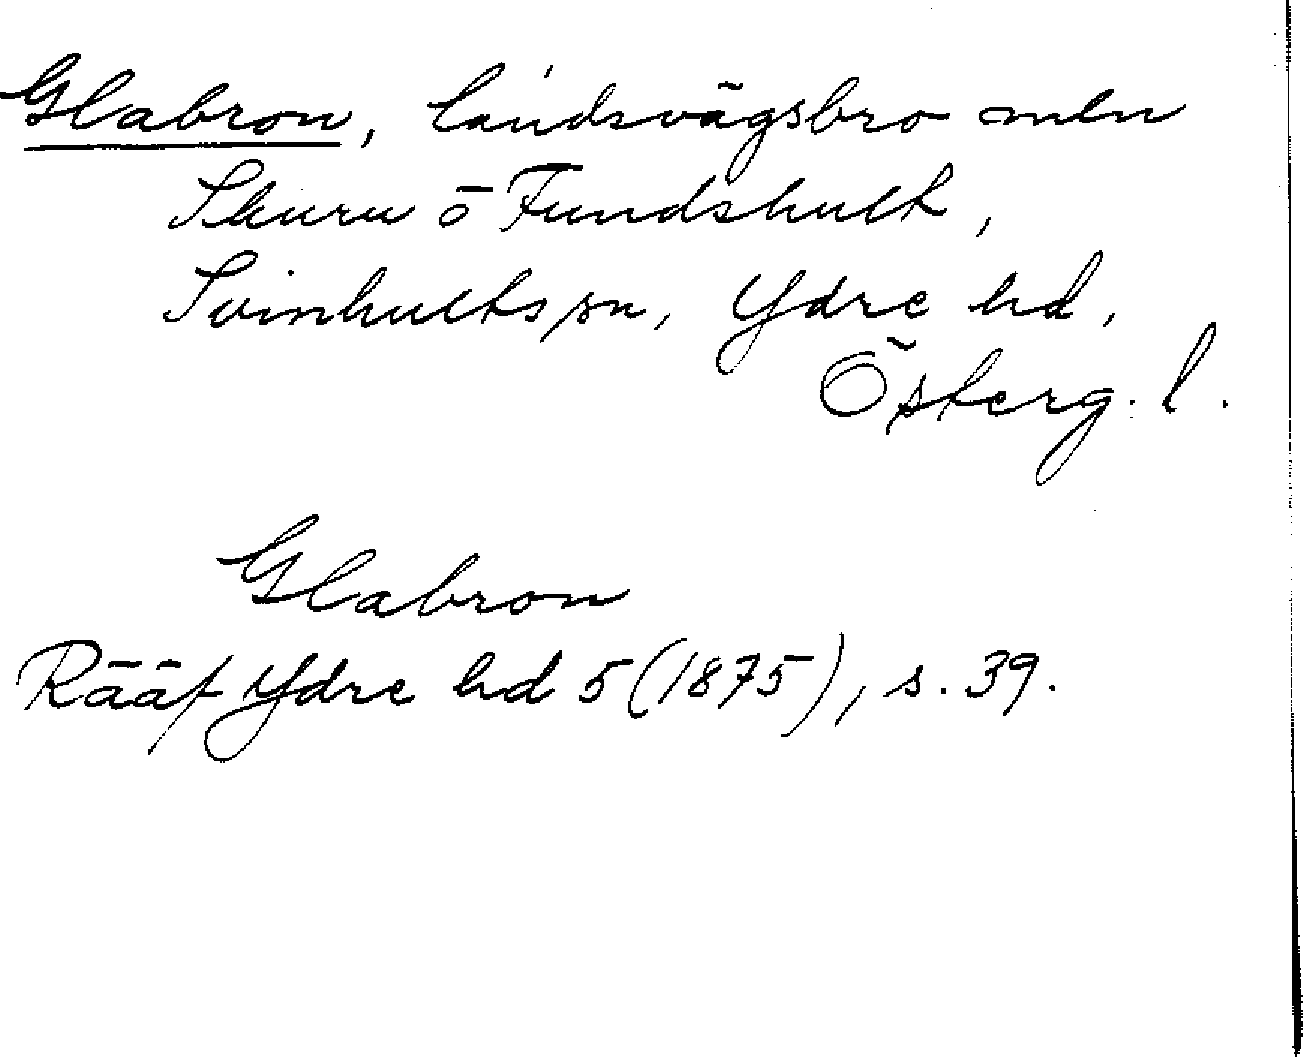 Glabron, landsvägsbro mln
Skuru o Fundshult,
Svinhults sn, Ydre hd,
Österg. l.
Glabron
Rääf Ydre hd 5 (1875), s. 39.